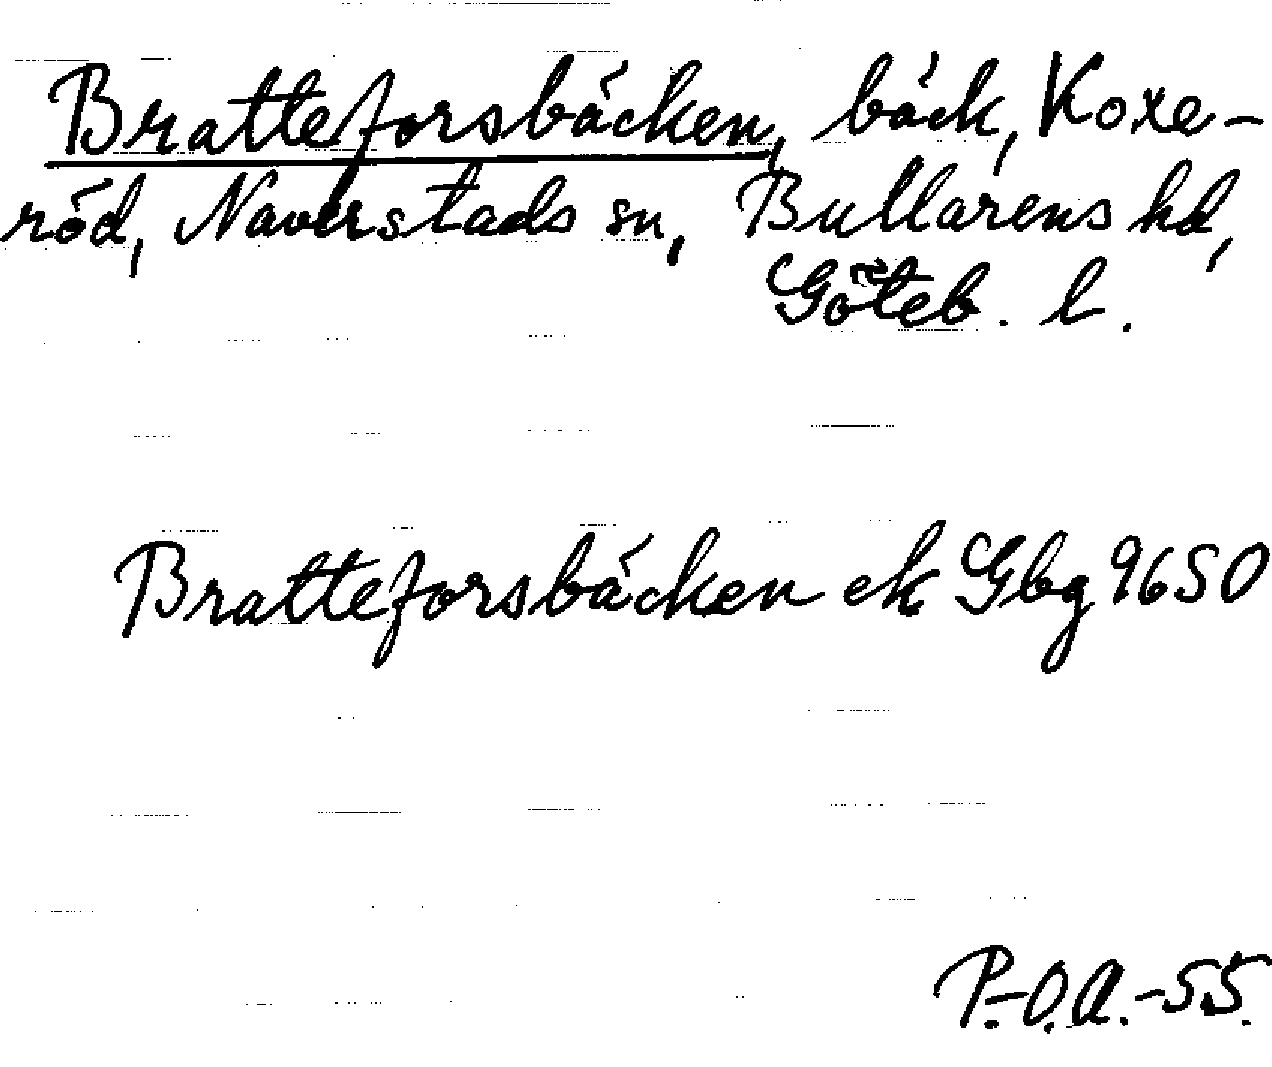 Bratteforsbäcken, bäck, Koxe-
röd, Naverstads sn, Bullarens hd,
Göteb. l.
Bratteforsbäcken ek Gbg 9650
P.-O.A.-55.